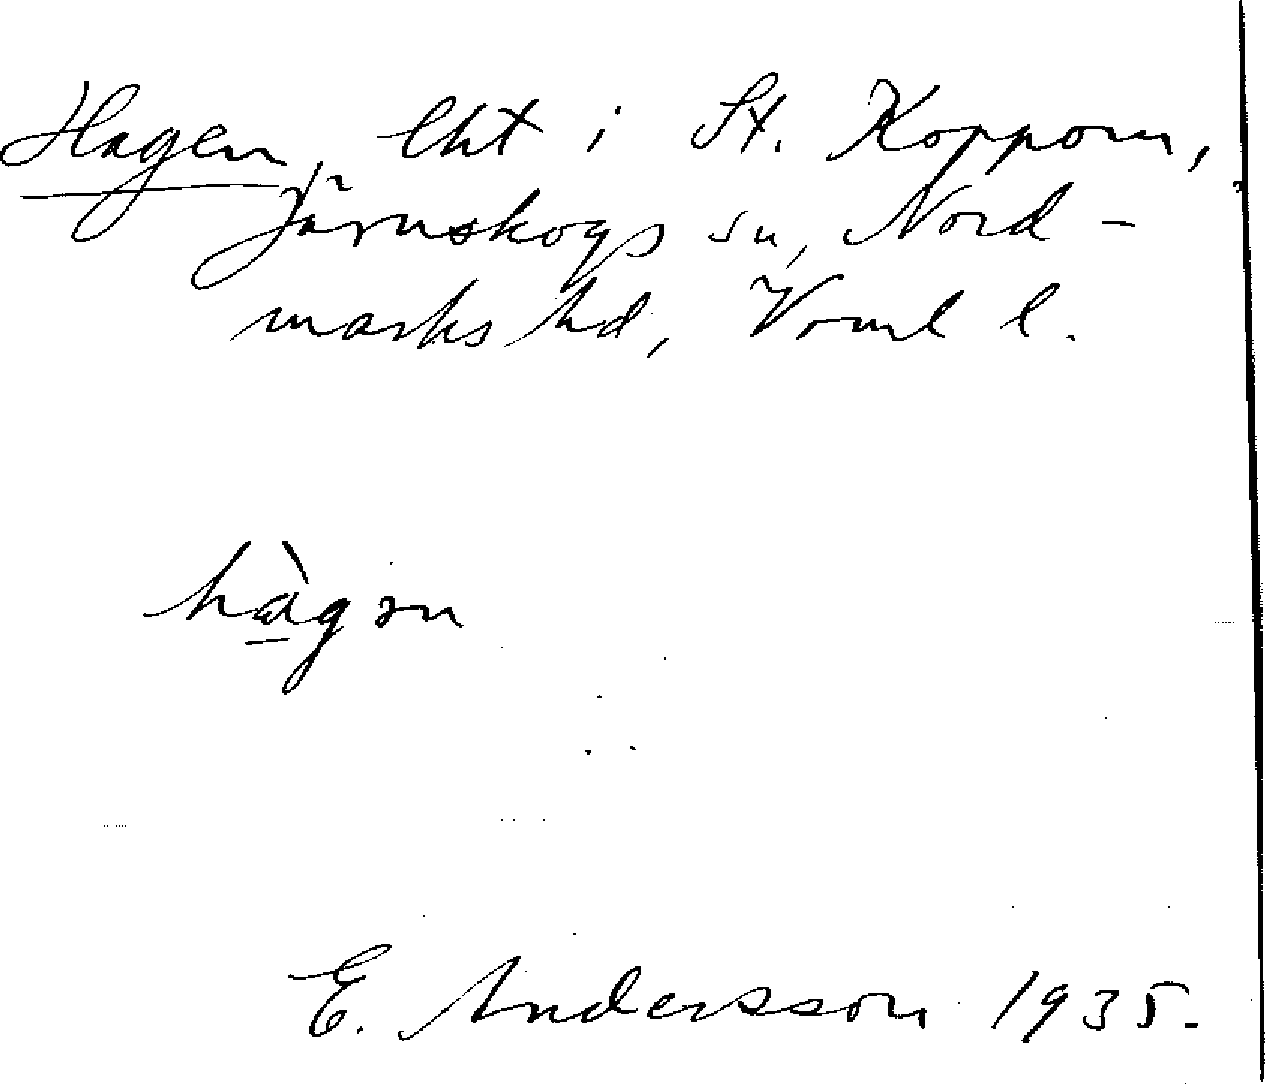 Hagen, lht i St. Koppom,
Järnskogs sn, Nord-
marks hd, Vrml l.
hàgən
E. Andersson 1935.